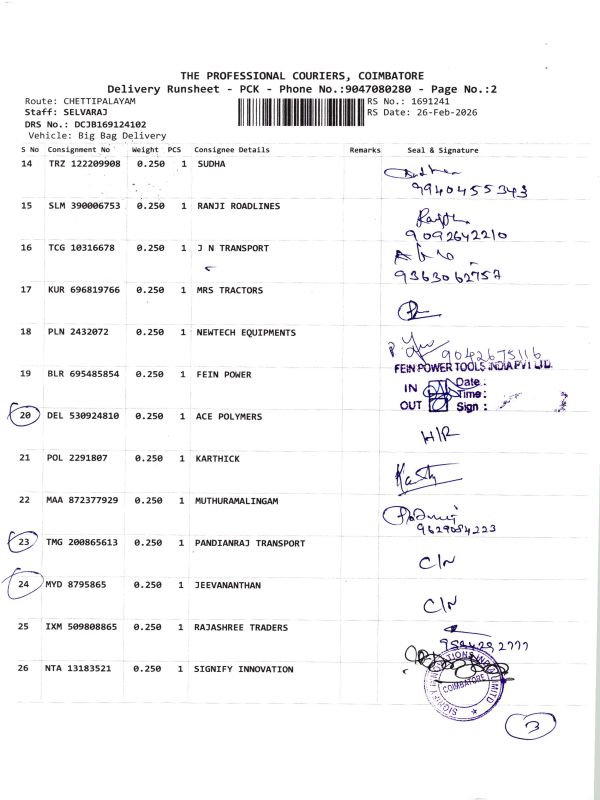 THE PROFESSIONAL COURIERS, COIMBATORE
Delivery Runsheet - PCK - Phone No.:9047080280 - Page No.:2
Route: CHETTIPALAYAM RS No.: 1691241
Staff: SELVARAJ RS Date: 26-Feb-2026
DRS No.: DCJB169124102
Vehicle: Big Bag Delivery
S No Consignment No Weight PCS Consignee Details Remarks Seal & Signature
14 TRZ 122209908 0.250 1 SUDHA
9940455343
15 SLM 390006753 0.250 1 RANJI ROADLINES
9092642210
16 TCG 10316678 0.250 1 J N TRANSPORT
9363062757
17 KUR 696819766 0.250 1 MRS TRACTORS
18 PLN 2432072 0.250 1 NEWTECH EQUIPMENTS
9042675116
FEIN POWER TOOLS INDIA PVT LTD.
19 BLR 695485854 0.250 1 FEIN POWER
IN Date :
Time :
OUT Sign :
20 DEL 530924810 0.250 1 ACE POLYMERS
H/R
21 POL 2291807 0.250 1 KARTHICK
22 MAA 872377929 0.250 1 MUTHURAMALINGAM
9629084223
23 TMG 200865613 0.250 1 PANDIANRAJ TRANSPORT
C/N
24 MYD 8795865 0.250 1 JEEVANANTHAN
C/N
25 IXM 509808865 0.250 1 RAJASHREE TRADERS
26 NTA 13183521 0.250 1 SIGNIFY INNOVATION
COIMBATORE
3